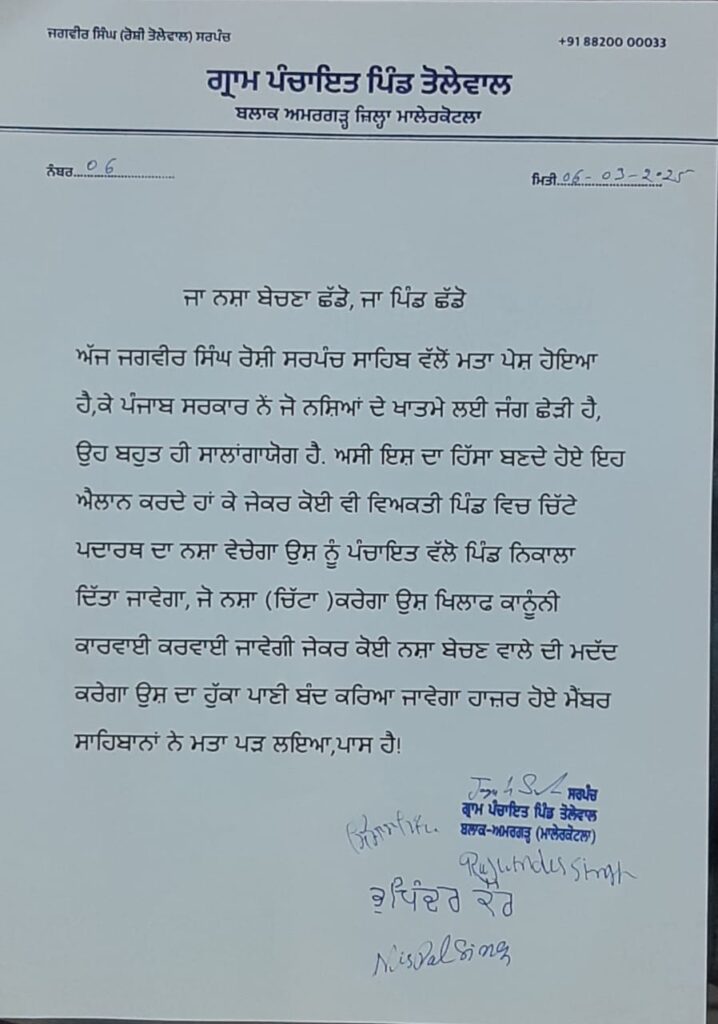 ਜਗਵੀਰ ਸਿੰਘ (ਰੋਸ਼ੀ ਤੋਲੇਵਾਲ) ਸਰਪੰਚ
+91 88200 00033
ਗ੍ਰਾਮ ਪੰਚਾਇਤ ਪਿੰਡ ਤੋਲੇਵਾਲ
ਬਲਾਕ ਅਮਰਗੜ੍ਹ ਜ਼ਿਲ੍ਹਾ ਮਾਲੇਰਕੋਟਲਾ
ਨੰਬਰ 06
ਮਿਤੀ 06-03-2025
ਜਾ ਨਸ਼ਾ ਬੇਚਣਾ ਛੱਡੋ, ਜਾ ਪਿੰਡ ਛੱਡੋ
ਅੱਜ ਜਗਵੀਰ ਸਿੰਘ ਰੋਸ਼ੀ ਸਰਪੰਚ ਸਾਹਿਬ ਵੱਲੋਂ ਮਤਾ ਪੇਸ਼ ਹੋਇਆ
ਹੈ,ਕੇ ਪੰਜਾਬ ਸਰਕਾਰ ਨੇਂ ਜੋ ਨਸ਼ਿਆਂ ਦੇ ਖਾਤਮੇ ਲਈ ਜੰਗ ਛੇੜੀ ਹੈ,
ਉਹ ਬਹੁਤ ਹੀ ਸਾਲਾਂਗਾਯੋਗ ਹੈ. ਅਸੀ ਇਸ਼ ਦਾ ਹਿੱਸਾ ਬਣਦੇ ਹੋਏ ਇਹ
ਐਲਾਨ ਕਰਦੇ ਹਾਂ ਕੇ ਜੇਕਰ ਕੋਈ ਵੀ ਵਿਅਕਤੀ ਪਿੰਡ ਵਿਚ ਚਿੱਟੇ
ਪਦਾਰਥ ਦਾ ਨਸ਼ਾ ਵੇਚੇਗਾ ਉਸ਼ ਨੂੰ ਪੰਚਾਇਤ ਵੱਲੋ ਪਿੰਡ ਨਿਕਾਲਾ
ਦਿੱਤਾ ਜਾਵੇਗਾ, ਜੋ ਨਸ਼ਾ (ਚਿੱਟਾ )ਕਰੇਗਾ ਉਸ਼ ਖਿਲਾਫ ਕਾਨੂੰਨੀ
ਕਾਰਵਾਈ ਕਰਵਾਈ ਜਾਵੇਗੀ ਜੇਕਰ ਕੋਈ ਨਸ਼ਾ ਬੇਚਣ ਵਾਲੇ ਦੀ ਮਦੱਦ
ਕਰੇਗਾ ਉਸ਼ ਦਾ ਹੁੱਕਾ ਪਾਣੀ ਬੰਦ ਕਰਿਆ ਜਾਵੇਗਾ ਹਾਜ਼ਰ ਹੋਏ ਮੈਂਬਰ
ਸਾਹਿਬਾਨਾਂ ਨੇ ਮਤਾ ਪੜ ਲਇਆ,ਪਾਸ ਹੈ!
ਸਰਪੰਚ
ਗ੍ਰਾਮ ਪੰਚਾਇਤ ਪਿੰਡ ਤੋਲੇਵਾਲ
ਬਲਾਕ-ਅਮਰਗੜ੍ਹ (ਮਾਲੇਰਕੋਟਲਾ)
Singh
ਭੁਪਿੰਦਰ ਕੌਰ
NisPal Singh